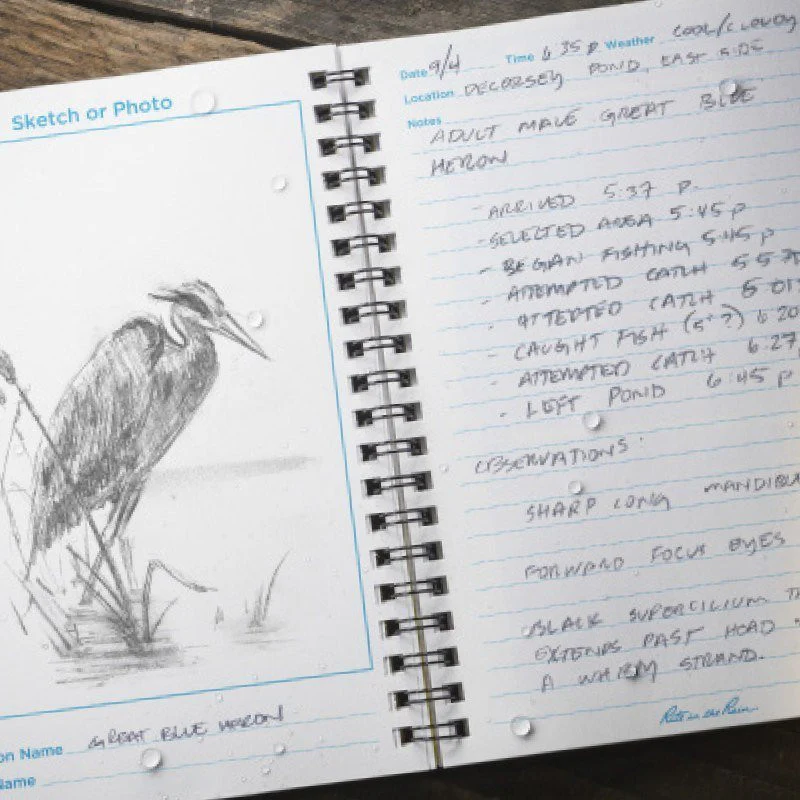 Sketch or Photo
on Name GREAT BLUE HERON
Name
Date 9/4 Time 6 35 P Weather COOL/CLOUDY
Location DECORSEY POND, EAST SIDE
Notes
ADULT MALE GREAT BLUE
HERON
- ARRIVED 5:37 P.
- SELECTED AREA 5:45 P
- BEGAN FISHING 5:45 P
- ATTEMPTED CATCH 5 57
- ATTEPTED CATCH 6 01
- CAUGHT FISH (5"?) 6 20
- ATTEMPTED CATCH 6:27
- LEFT POND 6:45 P
OBSERVATIONS:
SHARP LONG MANDIBL
FORWARD FOCUS EYES
BLACK SUPERCILIUM T
EXTENDS PAST HEAD
A WHISPY STRAND.
Rite in the Rain